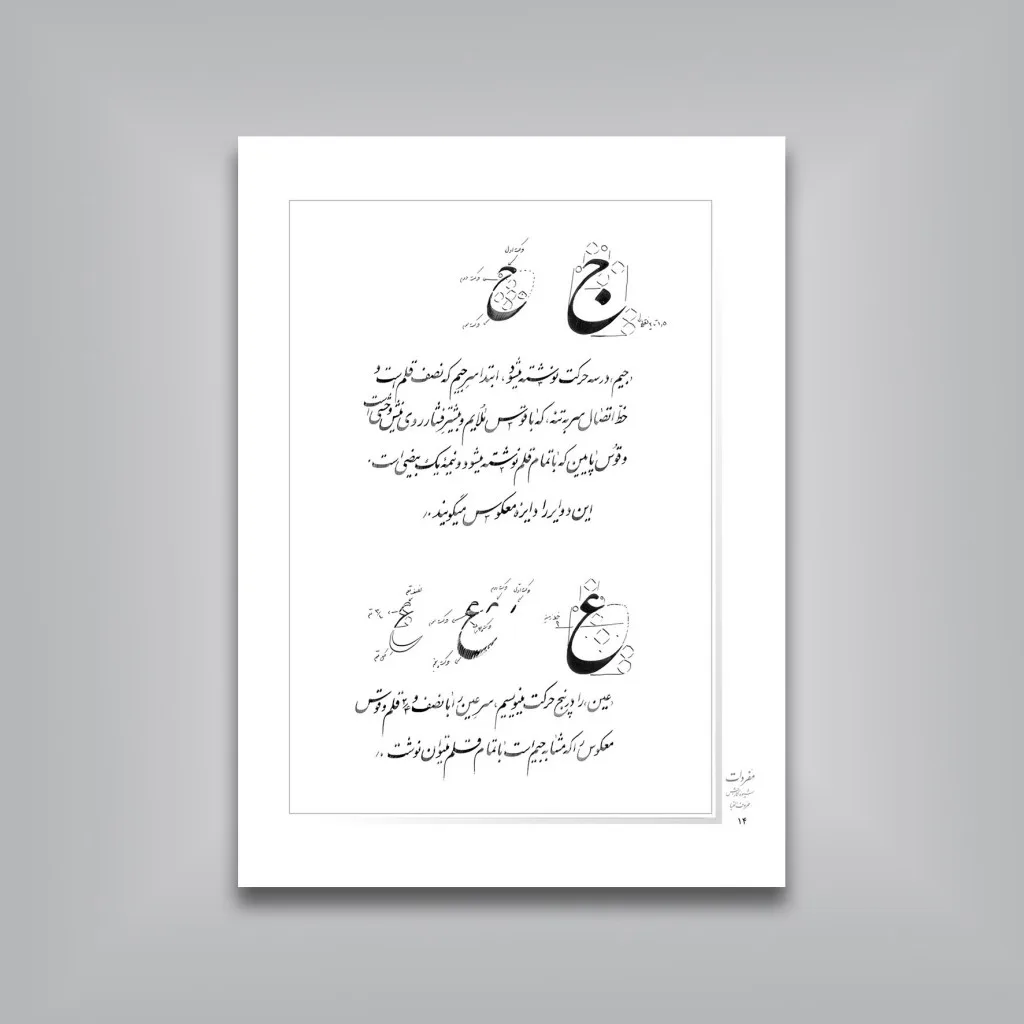 ج
حرکت اول
ح
حرکت دوم
حرکت سوم
«جیم» در سه حرکت نوشته میشود، ابتدا سر جیم که نصف قلم است و
خط اتصال سر به تنه، که با قوس ملایم و بیشتر فشار روی نیش وحشی است
و قوس پایین که با تمام قلم نوشته میشود و نیمهٔ یک بیضی است.
این دوایر را دایرهٔ معکوس میگویند.
ع
حرکت اول
حرکت دوم
حرکت سوم
حرکت پنجم
نصف قلم
تمام قلم
«عین» را در پنج حرکت مینویسیم، سر عین را با نصف و ۲/۳ قلم و قوس
معکوس را که مشابه جیم است با تمام قلم میتوان نوشت.
مفردات
حروف الفبا
۱۴